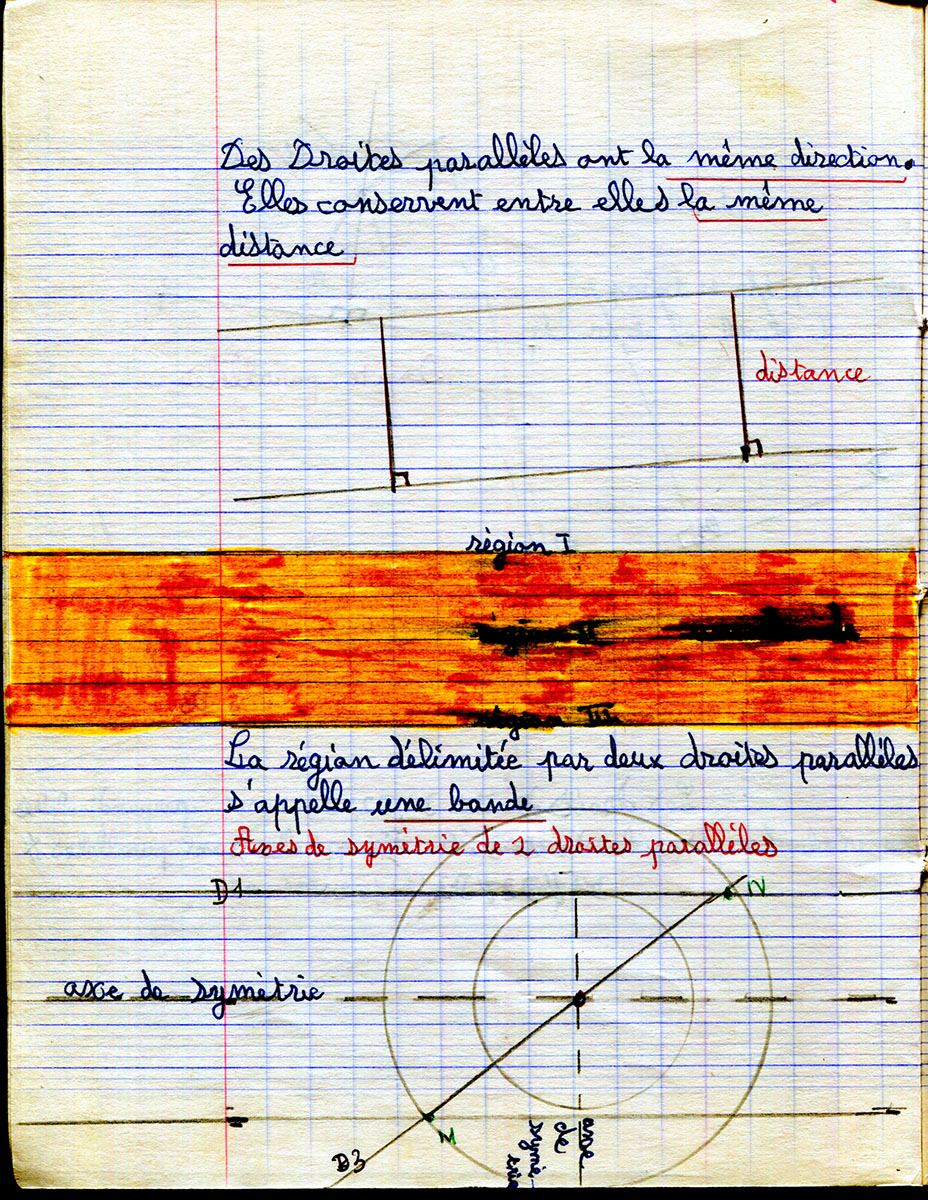 Des Droites parallèles ont la même direction.
Elles conservent entre elles la même
distance
distance
région I
région II
région III
La région délimitée par deux droites parallèles
s'appelle une bande
Axes de symétrie de 2 droites parallèles
D1
N
axe de symètrie
M
D3
axe
de
symé
trie